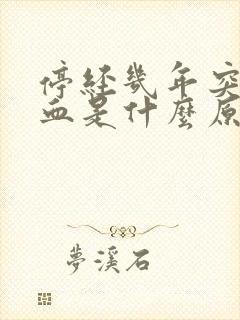 停經幾年突
血是什麼原
夢溪石